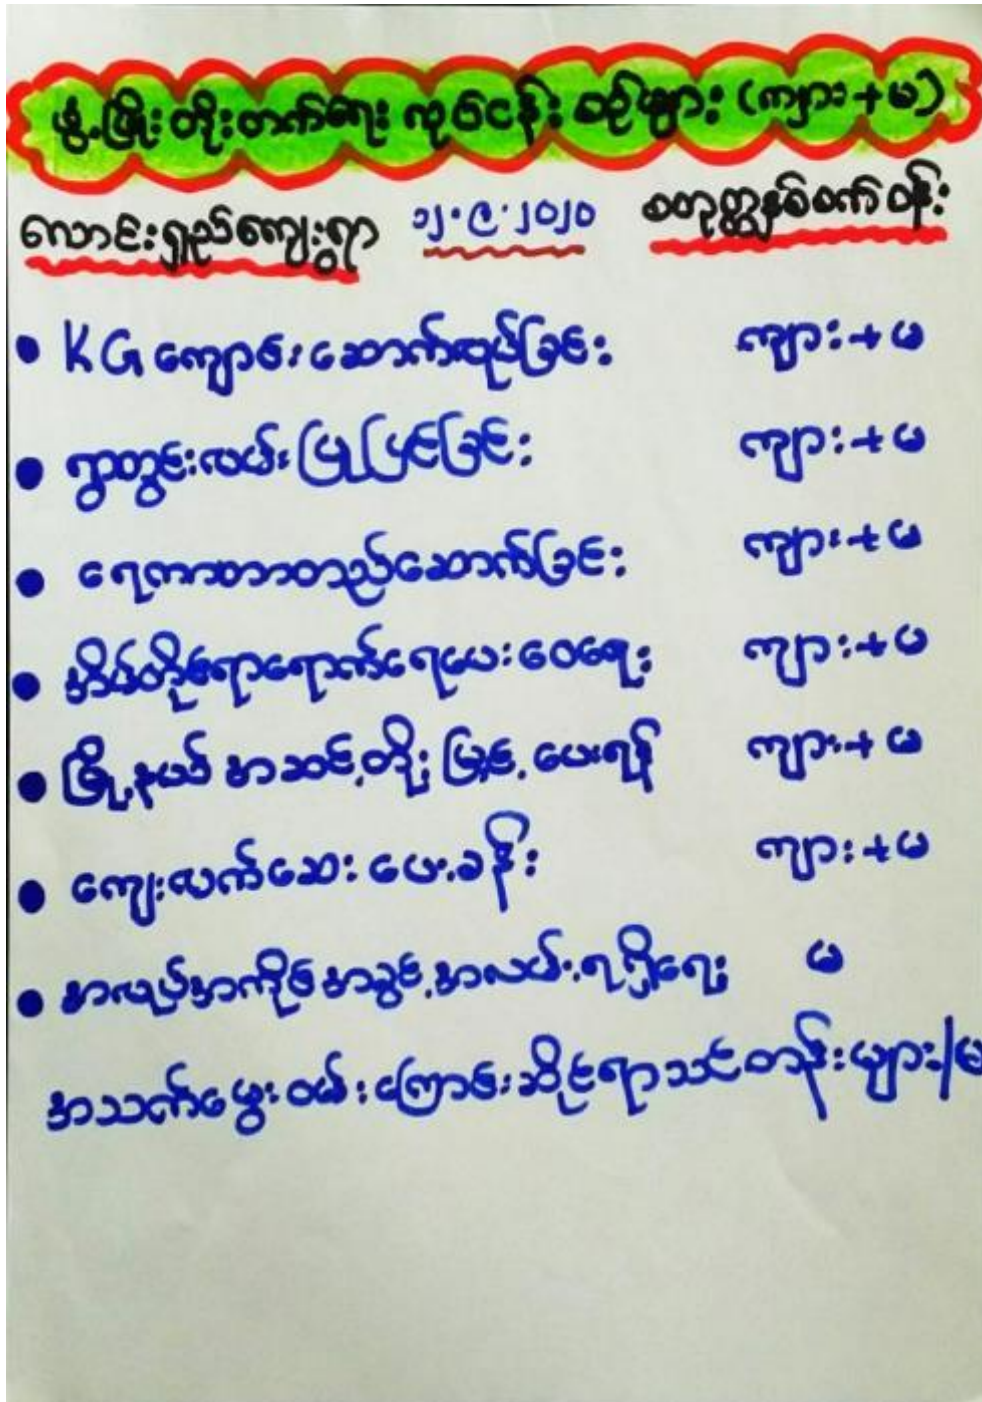 ဖွံ့ဖြိုးတိုးတက်ရေး လုပ်ငန်း စဉ်များ (ကျား+မ)
လောင်းရှည်ကျေးရွာ ၁၂.၉.၂၀၂၀ စတုတ္ထနှစ်စက်ဝန်း
• KG ကျောင်းဆောက်လုပ်ခြင်း ကျား+မ
• ရွာတွင်းလမ်းပြုပြင်ခြင်း ကျား+မ
• ရေကာတာတည်ဆောက်ခြင်း ကျား+မ
• အိမ်တိုင်ရာရောက်ရေပေးဝေရေး ကျား+မ
• မြို့နယ် အဆင့်တိုးမြှင့်ပေးရန် ကျား+မ
• ကျေးလက်ဆေးပေးခန်း ကျား+မ
• အလုပ်အကိုင်အခွင့်အလမ်းရရှိရေး မ
အသက်မွေးဝမ်းကြောင်းဆိုင်ရာသင်တန်းများ/မ